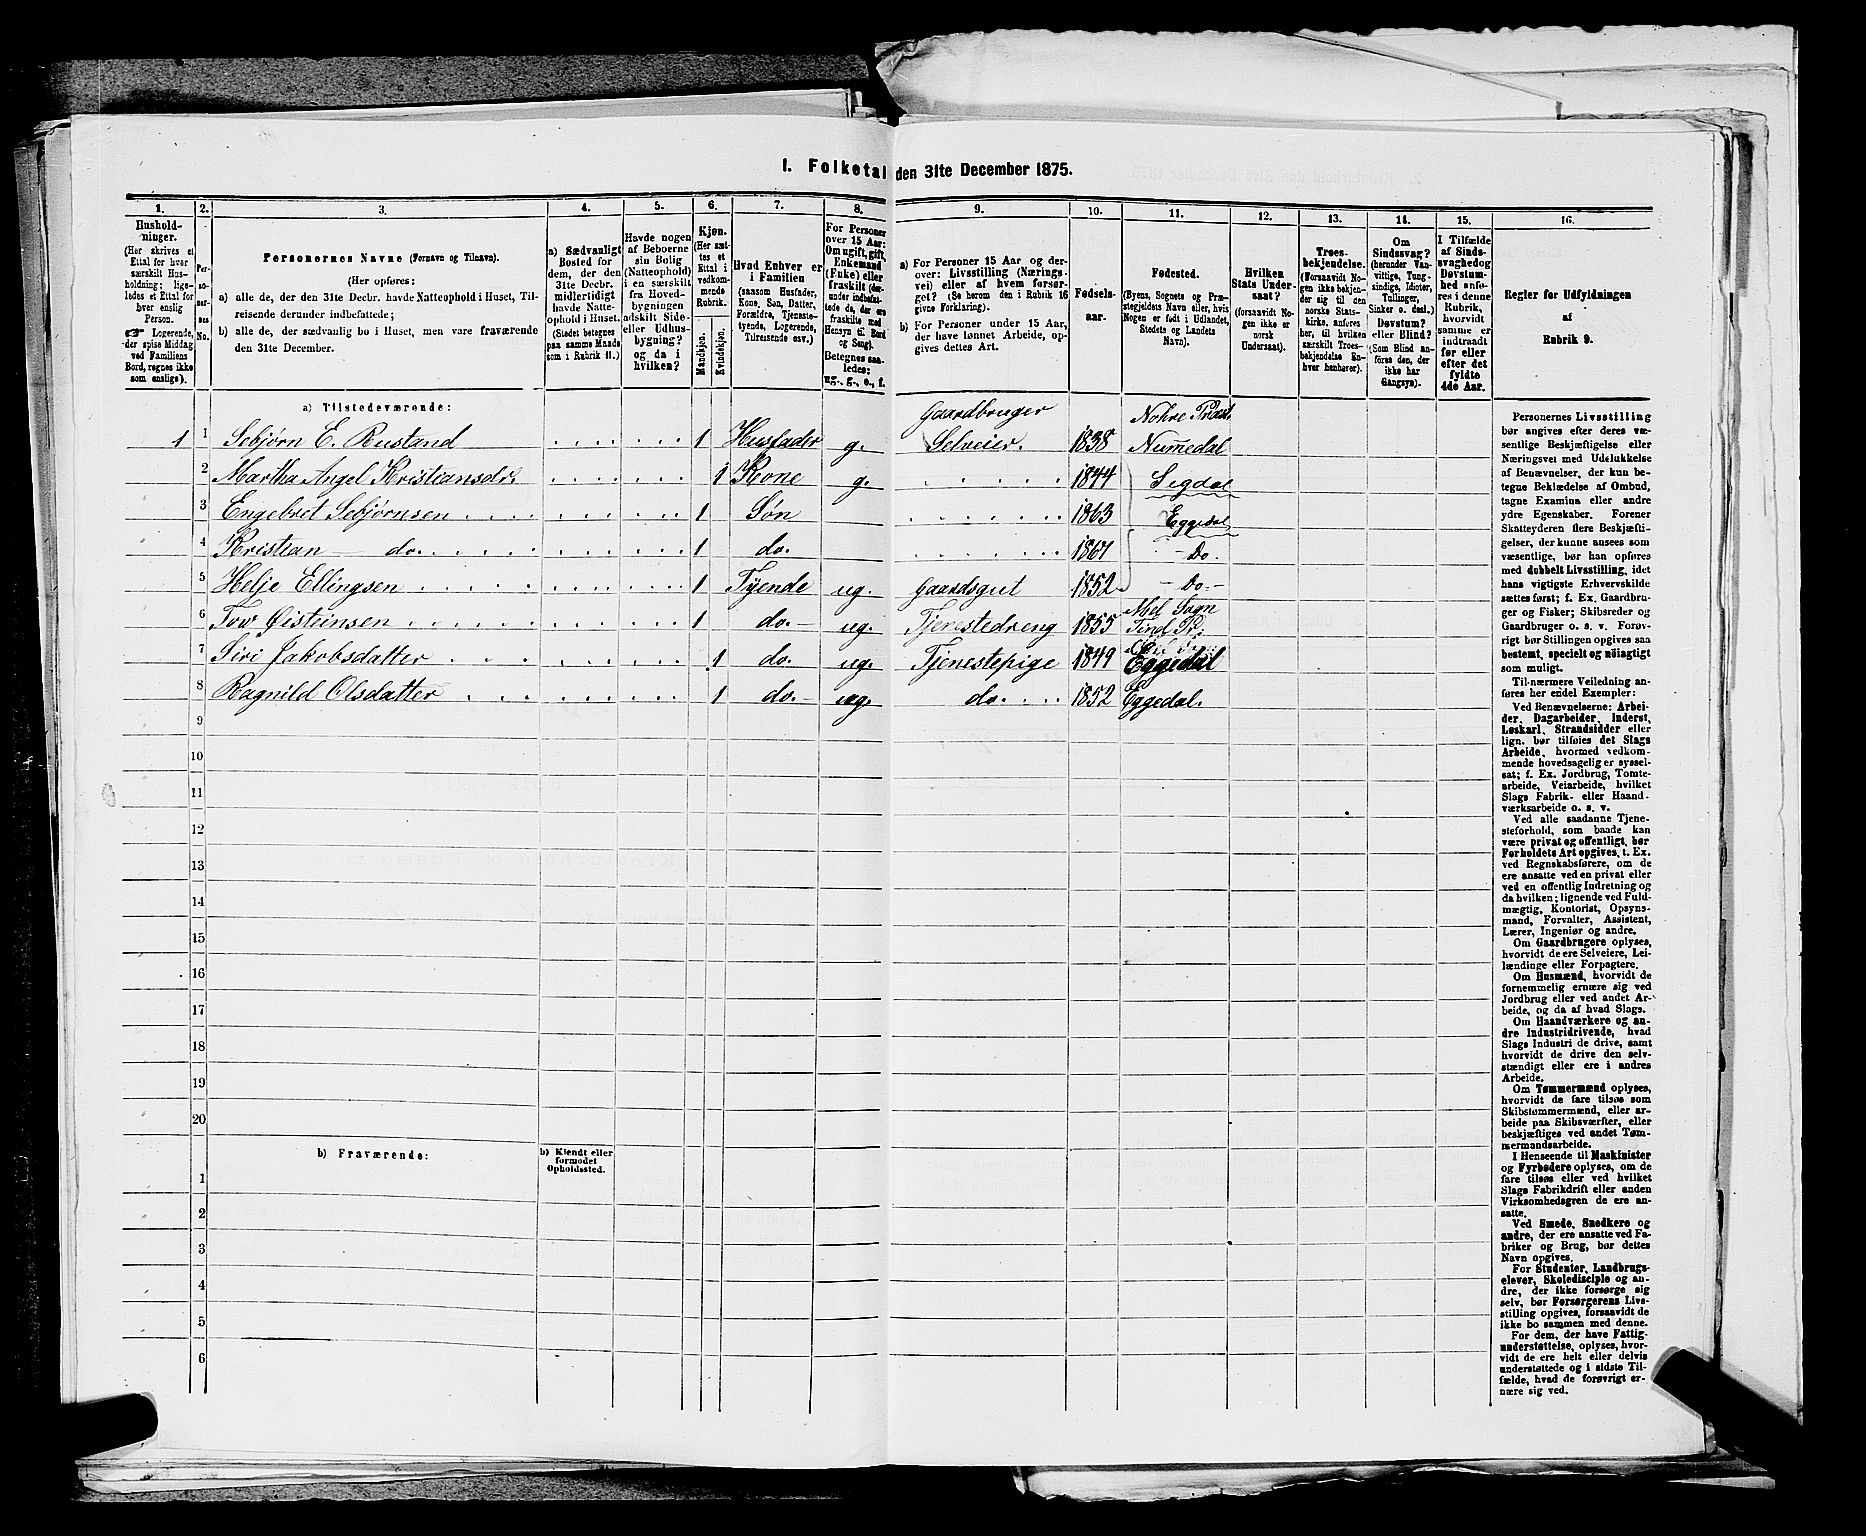 1. Folketal den 31te December 1875.
1.
Hushold-
ninger.
(Her skrives et
Ettal for hver
særskilt Hus-
holdning; lige-
ledes et Ettal for
hver enslig
Person.
☞ Logerende,
der spise Middag
ved Familiens
Bord, regnes ikke
som enslige).
2.
Per-
so-
ner-
nes
No.
3.
Personernes Navne (Fornavn og Tilnavn).
(Her opføres:
a) alle de, der den 31te Decbr. havde Natteophold i Huset, Til-
reisende derunder indbefattede;
b) alle de, der sædvanlig bo i Huset, men vare fraværende
den 31te December.
4.
a) Sædvanligt
Bosted for
dem, der den
31te Decbr.
midlertidigt
havde Natte-
ophold i Huset.
(Stedet betegnes
paa samme Maade
som i Rubrik 11.)
5.
Havde nogen
af Beboerne
sin Bolig
(Natteophold)
i en særskilt
fra Hoved-
bygningen
adskilt Side-
eller Udhus-
bygning?
og da i
hvilken?
6.
Kjøn.
(Her sæt-
tes et
Ettal i
vedkom-
mende
Rubrik.
Mandkjøn.
Kvindekjøn.
7.
Hvad Enhver er
i Familien
(saasom Husfader,
Kone, Søn, Datter,
Forældre, Tjeneste-
tyende, Logerende,
Tilreisende osv.)
8.
For Personer
over 15 Aar:
Om ugift, gift,
Enkemand
(Enke) eller
fraskilt (der-
under indbefat-
tede de, der ere
fraskilte med
Hensyn til Bord
og Seng).
Betegnes saa-
ledes:
ug., g., e., f.
9.
a) For Personer 15 Aar og der-
over: Livsstilling (Nærings-
vei) eller af hvem forsør-
get? (Se herom den i Rubrik 16
givne Forklaring).
b) For Personer under 15 Aar,
der have lønnet Arbeide, op-
gives dettes Art.
10.
Fødsels-
aar.
11.
Fødested.
(Byens, Sognets og Præ-
stegjeldets Navn eller, hvis
Nogen er født i Udlandet,
Stedets og Landets
Navn).
12.
Hvilken
Stats Under-
saat?
(forsaavidt No-
gen ikke er
norsk
Undersaat).
13.
Troes-
bekjendelse.
(Forsaavidt No-
gen ikke bekjen-
der sig til den
norske Stats-
kirke, anføres
her, til hvilken
særskilt Troes-
bekjendelse En-
hver henhører).
14.
Om
Sindssvag?
(herunder Van-
vittige, Tung-
sindige, Idioter,
Tullinger,
Sinker o. desl.)
Døvstum?
eller Blind?
(Som Blind an-
føres den, der
ikke har
Gangsyn).
15.
I Tilfælde
af Sinds-
svaghed og
Døvstum-
hed anfø-
res i denne
Rubrik,
hvorvidt
samme er
indtraadt
før eller
efter det
fyldte
4de Aar.
16.
Regler for Udfyldningen
af
Rubrik 9.
a) Tilstedeværende:
1 1 Sebjørn E. Rustand 1 Husfader g. Gaardbruger Selveier. 1838 Nohre Præst. Numedal
2 Martha Angel Kristiansdr. 1 Kone g. 1844 Sigdal
3 Engebret Sebjørnsen 1 Søn 1863 Eggedal
4 Kristian — do. 1 do. 1867 — Do —
5 Helje Ellingsen 1 Tyende ug. Gaardsgut 1852 — Do —
6 Tov Øisteinsen 1 do. ug. Tjenestedreng 1855 Mel Sogn Tind Pr:
7 Siri Jakobsdatter 1 do. ug. Tjenestepige 1849 Eggedal
8 Ragnild Olsdatter 1 do. ug. do. 1852 Eggedal.
9
10
11
12
13
14
15
16
17
18
19
20
b) Fraværende:
b) Kjendt eller
formodet
Opholdssted.
1
2
3
4
5
6
Personernes Livsstilling
bør angives efter deres væ-
sentlige Beskjæftigelse eller
Næringsvei med Udelukkelse
af Benævnelser, der kun be-
tegne Beklædelse af Ombud,
tagne Examina eller andre
ydre Egenskaber. Forener
Skatteyderen flere Beskjæfti-
gelser, der kunne ansees som
væsentlige, bør han opføres
med dobbelt Livsstilling, idet
hans vigtigste Erhvervskilde
sættes først; f. Ex. Gaardbru-
ger og Fisker; Skibsreder og
Gaardbruger o. s. v. Forøv-
rigt bør Stillingen opgives saa
bestemt, specielt og nøiagtigt
som muligt.
Til nærmere Veiledning an-
føres her endel Exempler:
Ved Benævnelserne: Arbei-
der, Dagarbeider, Inderst,
Løskarl, Strandsidder eller
lign. bør tilføies det Slags
Arbeide, hvormed vedkom-
mende hovedsagelig er syssel-
sat; f. Ex. Jordbrug, Tomte-
arbeide, Veiarbeide, hvilket
Slags Fabrik- eller Haand-
værksarbeide o. s. v.
Ved alle saadanne Tjene-
steforhold, som baade kan
være privat og offentligt, bør
Forholdets Art opgives, t. Ex.
ved Regnskabsførere, om de
ere ansatte ved en privat eller
ved en offentlig Indretning og
da hvilken; lignende ved Fuld-
mægtig, Kontorist, Opsyns-
mand, Forvalter, Assistent,
Lærer, Ingeniør og andre.
Om Gaardbrugere oplyses,
hvorvidt de ere Selveiere, Lei-
lændinge eller Forpagtere.
Om Husmænd, hvorvidt de
fornemmelig ernære sig ved
Jordbrug eller ved andet Ar-
beide, og da af hvad Slags.
Om Haandværkere og an-
dre Industridrivende, hvad
Slags Industri de drive, samt
hvorvidt de drive den selv-
stændigt eller ere i andres
Arbeide.
Om Tømmermænd oplyses,
hvorvidt de fare tilsøs som
Skibstømmermænd, eller ar-
beide paa Skibsværfter, eller
beskjæftiges ved andet Tøm-
mermandsarbeide.
I Henseende til Maskinister
og Fyrbødere oplyses, om de
fare tilsøs eller ved hvilket
Slags Fabrikdrift eller anden
Virksomhedsgren de ere an-
satte.
Ved Smede, Snedkere og
andre, der ere ansatte ved Fa-
briker og Brug, bør dettes
Navn opgives.
For Studenter, Landbrugs-
elever, Skoledisciple og an-
dre, der ikke forsørge sig
selv, bør Forsørgerens Livs-
stilling opgives, forsaavidt de
ikke bo sammen med denne.
For dem, der have Fattig-
understøttelse, oplyses, hvor-
vidt de ere helt eller delvis
understøttede og i sidste Til-
fælde, hvad de forøvrigt er-
nære sig ved.